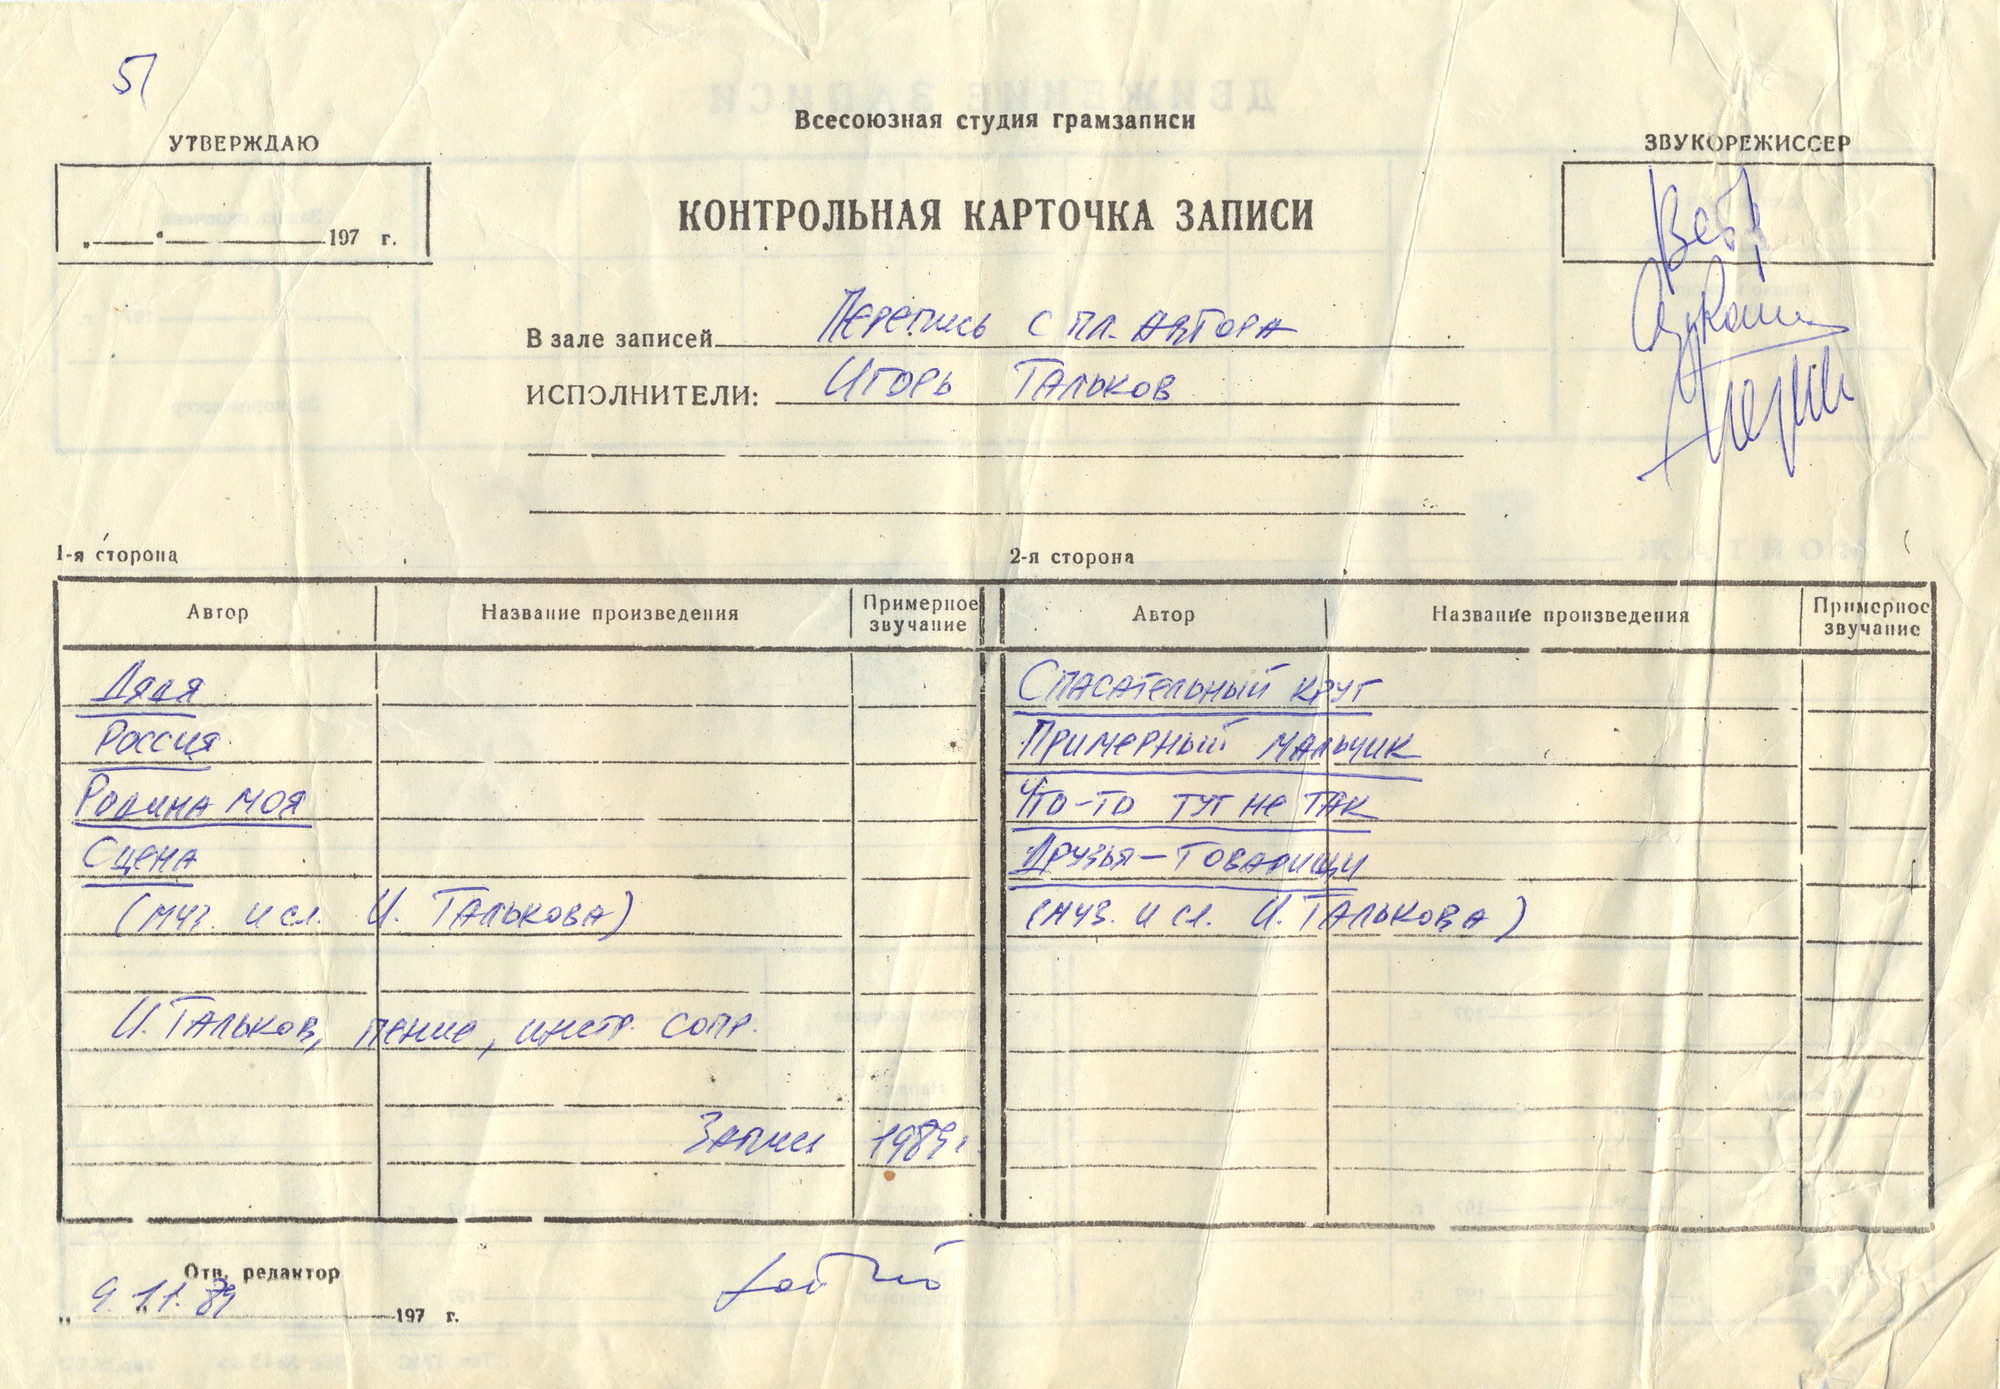 51
Всесоюзная студия грамзаписи
УТВЕРЖДАЮ
ЗВУКОРЕЖИССЕР
„ “ 197 г.
КОНТРОЛЬНАЯ КАРТОЧКА ЗАПИСИ
В зале записей Перепись с пл. автора
ИСПОЛНИТЕЛИ: Игорь Тальков
1-я сторона
2-я сторона
Автор Название произведения Примерное звучание
Автор Название произведения Примерное звучание
Дядя
Россия
Родина моя
Сцена
(муз. и сл. И. Талькова)
И. Тальков, пение, инстр. сопр.
Записи 1989 г.
Спасательный круг
Примерный мальчик
Что-то тут не так
Друзья-товарищи
(муз. и сл. И. Талькова)
Отв. редактор
„ 9.11.89 197 г.